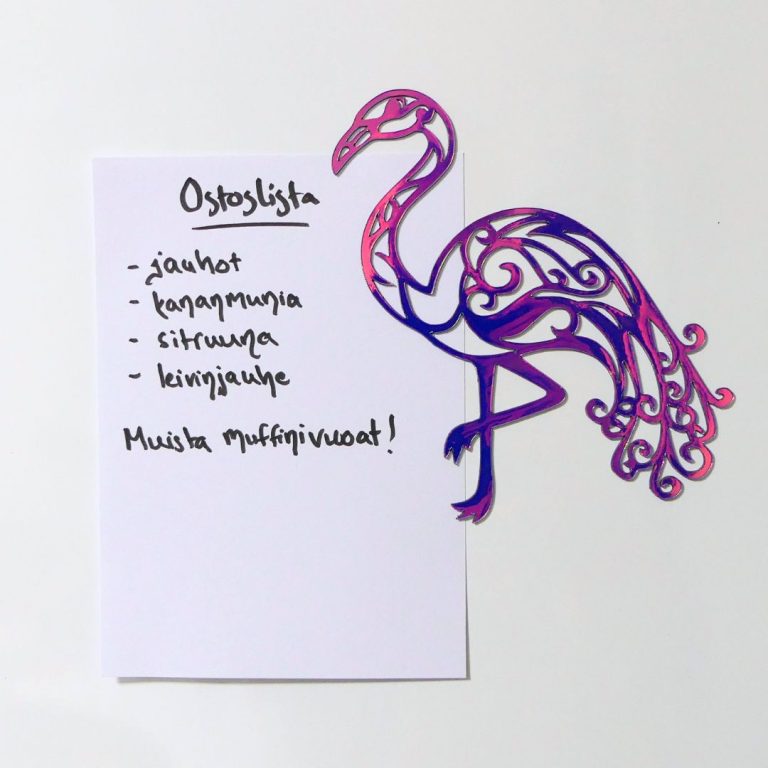 Ostoslista
- jauhot
- kananmunia
- sitruuna
- leivinjauhe
Muista muffinivuoat!